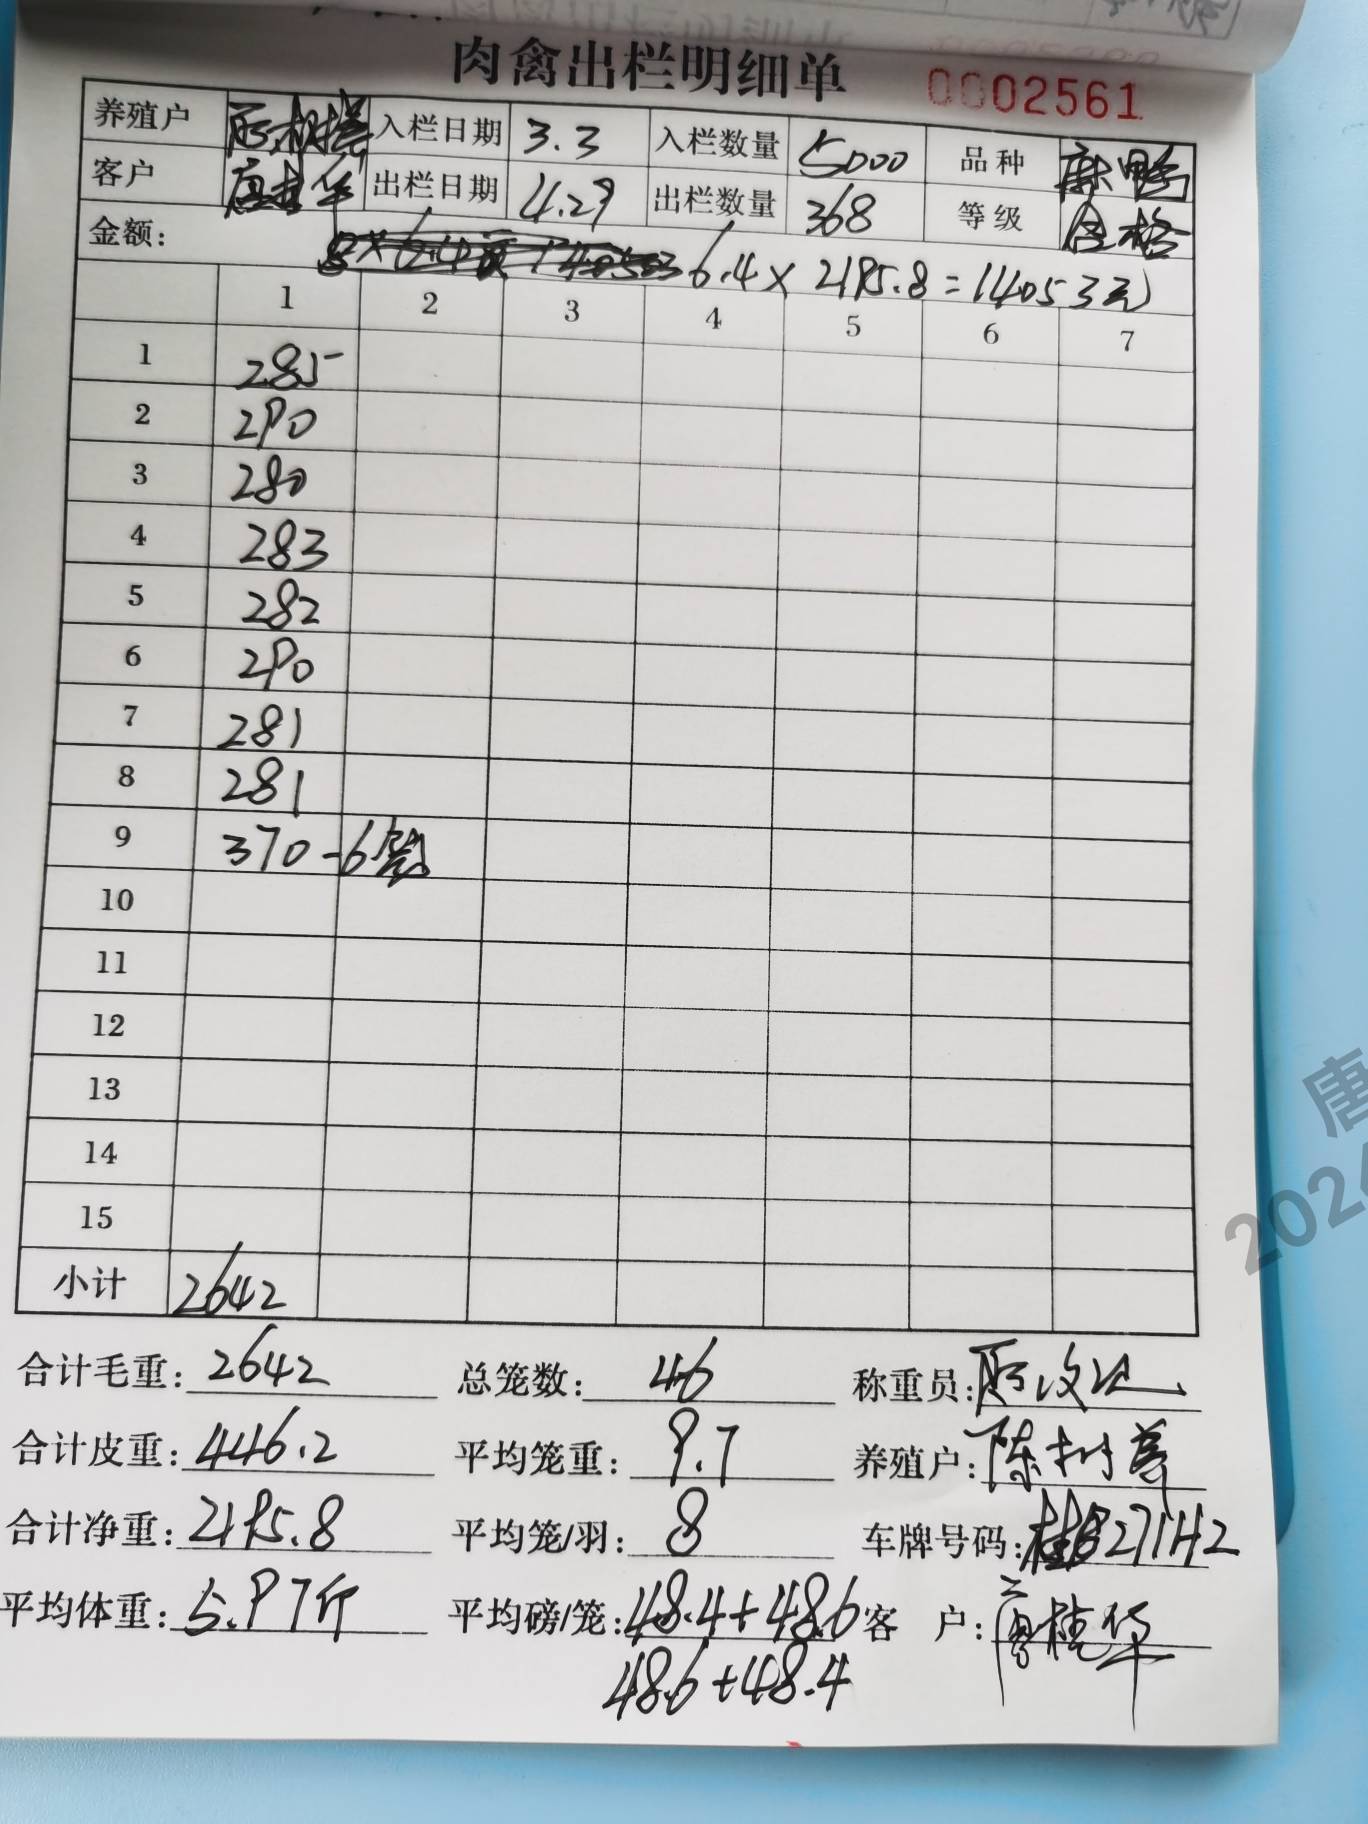 肉禽出栏明细单 0002561
养殖户 陈树 入栏日期 3.3 入栏数量 5000 品种 麻鸭
客户 唐桂华 出栏日期 4.29 出栏数量 368 等级 合格
金额: 6.4×2195.8=14053元
1 2 3 4 5 6 7
1 285
2 290
3 280
4 283
5 282
6 290
7 281
8 281
9 370-6笼
10
11
12
13
14
15
小计 2642
合计毛重: 2642 总笼数: 46 称重员:
合计皮重: 446.2 平均笼重: 9.7 养殖户: 陈树
合计净重: 2195.8 平均笼/羽: 8 车牌号码: 桂B271H2
平均体重: 5.97斤 平均磅/笼: 48.4+48.6 客 户: 唐桂华
48.6+48.4
唐
202